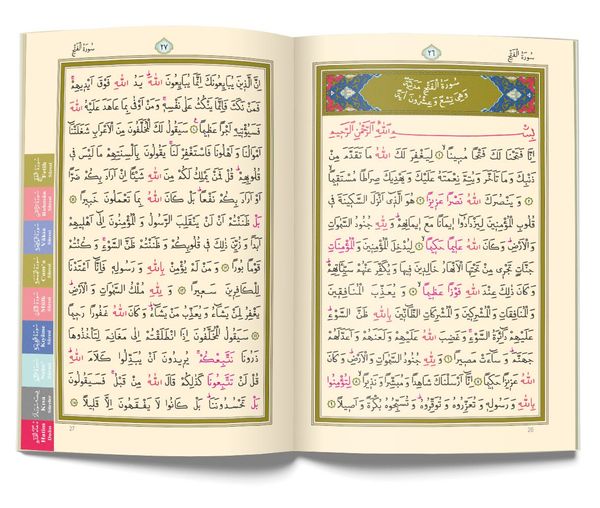 سُورَةُ الْفَتْحِ
٢٦
سُورَةُ الْفَتْحِ مَدَنِيَّةٌ
وَهِيَ تِسْعٌ وَعِشْرُونَ اٰيَةً
بِسْمِ اللّٰهِ الرَّحْمٰنِ الرَّحِيمِ
اِنَّا فَتَحْنَا لَكَ فَتْحًا مُبِينًا ١ لِيَغْفِرَ لَكَ اللّٰهُ مَا تَقَدَّمَ مِنْ
ذَنْبِكَ وَمَا تَاَخَّرَ وَيُتِمَّ نِعْمَتَهُ عَلَيْكَ وَيَهْدِيَكَ صِرَاطًا مُسْتَقِيمًا
٢ وَيَنْصُرَكَ اللّٰهُ نَصْرًا عَزِيزًا ٣ هُوَ الَّذِي اَنْزَلَ السَّكِينَةَ فِي
قُلُوبِ الْمُؤْمِنِينَ لِيَزْدَادُوا اِيمَانًا مَعَ اِيمَانِهِمْ وَلِلّٰهِ جُنُودُ السَّمٰوَاتِ
وَالْاَرْضِ وَكَانَ اللّٰهُ عَلِيمًا حَكِيمًا ٤ لِيُدْخِلَ الْمُؤْمِنِينَ وَالْمُؤْمِنَاتِ
جَنَّاتٍ تَجْرِي مِنْ تَحْتِهَا الْاَنْهَارُ خَالِدِينَ فِيهَا وَيُكَفِّرَ عَنْهُمْ سَيِّاٰتِهِمْ
وَكَانَ ذٰلِكَ عِنْدَ اللّٰهِ فَوْزًا عَظِيمًا ٥ وَيُعَذِّبَ الْمُنَافِقِينَ
وَالْمُنَافِقَاتِ وَالْمُشْرِكِينَ وَالْمُشْرِكَاتِ الظَّانِّينَ بِاللّٰهِ ظَنَّ السَّوْءِ
عَلَيْهِمْ دَائِرَةُ السَّوْءِ وَغَضِبَ اللّٰهُ عَلَيْهِمْ وَلَعَنَهُمْ وَاَعَدَّ لَهُمْ
جَهَنَّمَ وَسَاءَتْ مَصِيرًا ٦ وَلِلّٰهِ جُنُودُ السَّمٰوَاتِ وَالْاَرْضِ وَكَانَ
اللّٰهُ عَزِيزًا حَكِيمًا ٧ اِنَّا اَرْسَلْنَاكَ شَاهِدًا وَمُبَشِّرًا وَنَذِيرًا ٨ لِتُؤْمِنُوا
بِاللّٰهِ وَرَسُولِهِ وَتُعَزِّرُوهُ وَتُوَقِّرُوهُ وَتُسَبِّحُوهُ بُكْرَةً وَاَصِيلًا ٩
26
٢٧
سُورَةُ الْفَتْحِ
اِنَّ الَّذِينَ يُبَايِعُونَكَ اِنَّمَا يُبَايِعُونَ اللّٰهَ يَدُ اللّٰهِ فَوْقَ اَيْدِيهِمْ
فَمَنْ نَكَثَ فَاِنَّمَا يَنْكُثُ عَلٰى نَفْسِهِ وَمَنْ اَوْفٰى بِمَا عَاهَدَ عَلَيْهُ اللّٰهَ
فَسَيُؤْتِيهِ اَجْرًا عَظِيمًا ١٠ سَيَقُولُ لَكَ الْمُخَلَّفُونَ مِنَ الْاَعْرَابِ شَغَلَتْنَا
اَمْوَالُنَا وَاَهْلُونَا فَاسْتَغْفِرْ لَنَا يَقُولُونَ بِاَلْسِنَتِهِمْ مَا لَيْسَ فِي
قُلُوبِهِمْ قُلْ فَمَنْ يَمْلِكُ لَكُمْ مِنَ اللّٰهِ شَيْـًٔا اِنْ اَرَادَ بِكُمْ ضَرًّا
اَوْ اَرَادَ بِكُمْ نَفْعًا بَلْ كَانَ اللّٰهُ بِمَا تَعْمَلُونَ خَبِيرًا ١١
بَلْ ظَنَنْتُمْ اَنْ لَنْ يَنْقَلِبَ الرَّسُولُ وَالْمُؤْمِنُونَ اِلٰى اَهْلِيهِمْ
اَبَدًا وَزُيِّنَ ذٰلِكَ فِي قُلُوبِكُمْ وَظَنَنْتُمْ ظَنَّ السَّوْءِ وَكُنْتُمْ
قَوْمًا بُورًا ١٢ وَمَنْ لَمْ يُؤْمِنْ بِاللّٰهِ وَرَسُولِهِ فَاِنَّا اَعْتَدْنَا
لِلْكَافِرِينَ سَعِيرًا ١٣ وَلِلّٰهِ مُلْكُ السَّمٰوَاتِ وَالْاَرْضِ
يَغْفِرُ لِمَنْ يَشَاءُ وَيُعَذِّبُ مَنْ يَشَاءُ وَكَانَ اللّٰهُ غَفُورًا رَحِيمًا
١٤ سَيَقُولُ الْمُخَلَّفُونَ اِذَا انْطَلَقْتُمْ اِلٰى مَغَانِمَ لِتَأْخُذُوهَا
ذَرُونَا نَتَّبِعْكُمْ يُرِيدُونَ اَنْ يُبَدِّلُوا كَلَامَ اللّٰهِ
قُلْ لَنْ تَتَّبِعُونَا كَذٰلِكُمْ قَالَ اللّٰهُ مِنْ قَبْلُ فَسَيَقُولُونَ
بَلْ تَحْسُدُونَنَا بَلْ كَانُوا لَا يَفْقَهُونَ اِلَّا قَلِيلًا ١٥
27
Fetih Sûresi
Rahmân Sûresi
Vâkıa Sûresi
Cum'a Sûresi
Mülk Sûresi
Kıyâme Sûresi
Nebe' Sûresi
Kısa Sûreler
Hatim Duâsı